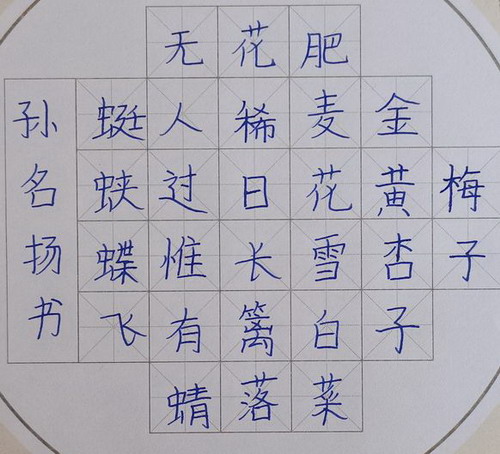 梅子
金黄杏子
肥麦花雪白菜
花稀日长篱落
无人过惟有蜻
蜓蛱蝶飞
孙名扬书